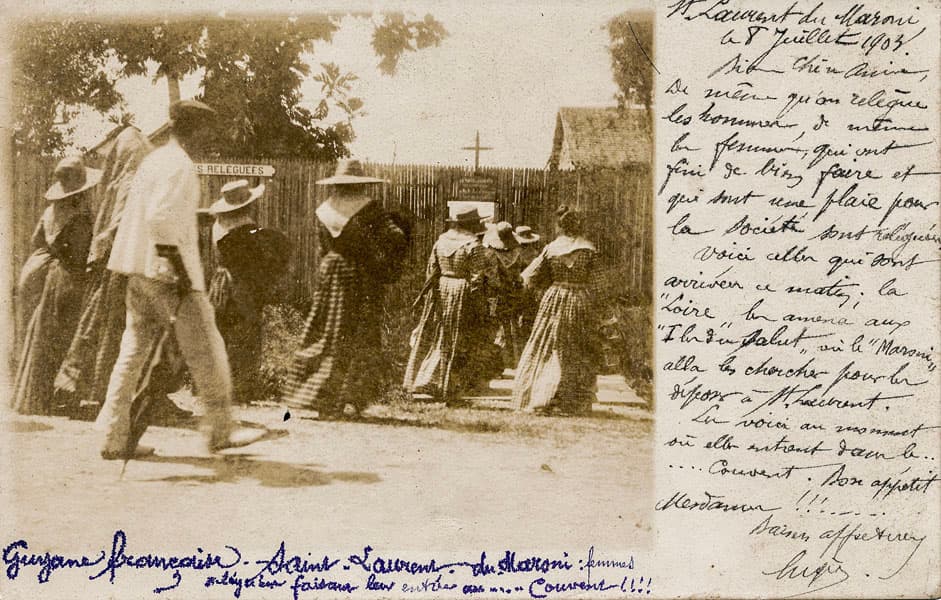 St Laurent du Maroni
le 8 Juillet 1903.
Bien Chère Amie,
De même qu'on relègue
les hommes, de même
les femmes, qui ont
fini de bien faire et
qui sont une plaie pour
la Société sont reléguées
Voici celles qui sont
arrivées ce matin; la
"Loire" les amena aux
"Iles du Salut" où le "Maroni"
alla les chercher pour les
déposer à St Laurent.
Les voici au moment
où elles entrent dans le..
.... Couvent. Bon appétit
Mesdames !!!......
Baisers affectueux
S RELEGUEES
Guyane française. - Saint-Laurent-du-Maroni: femmes
reléguées faisant leur entrée au ..... Couvent!!!!